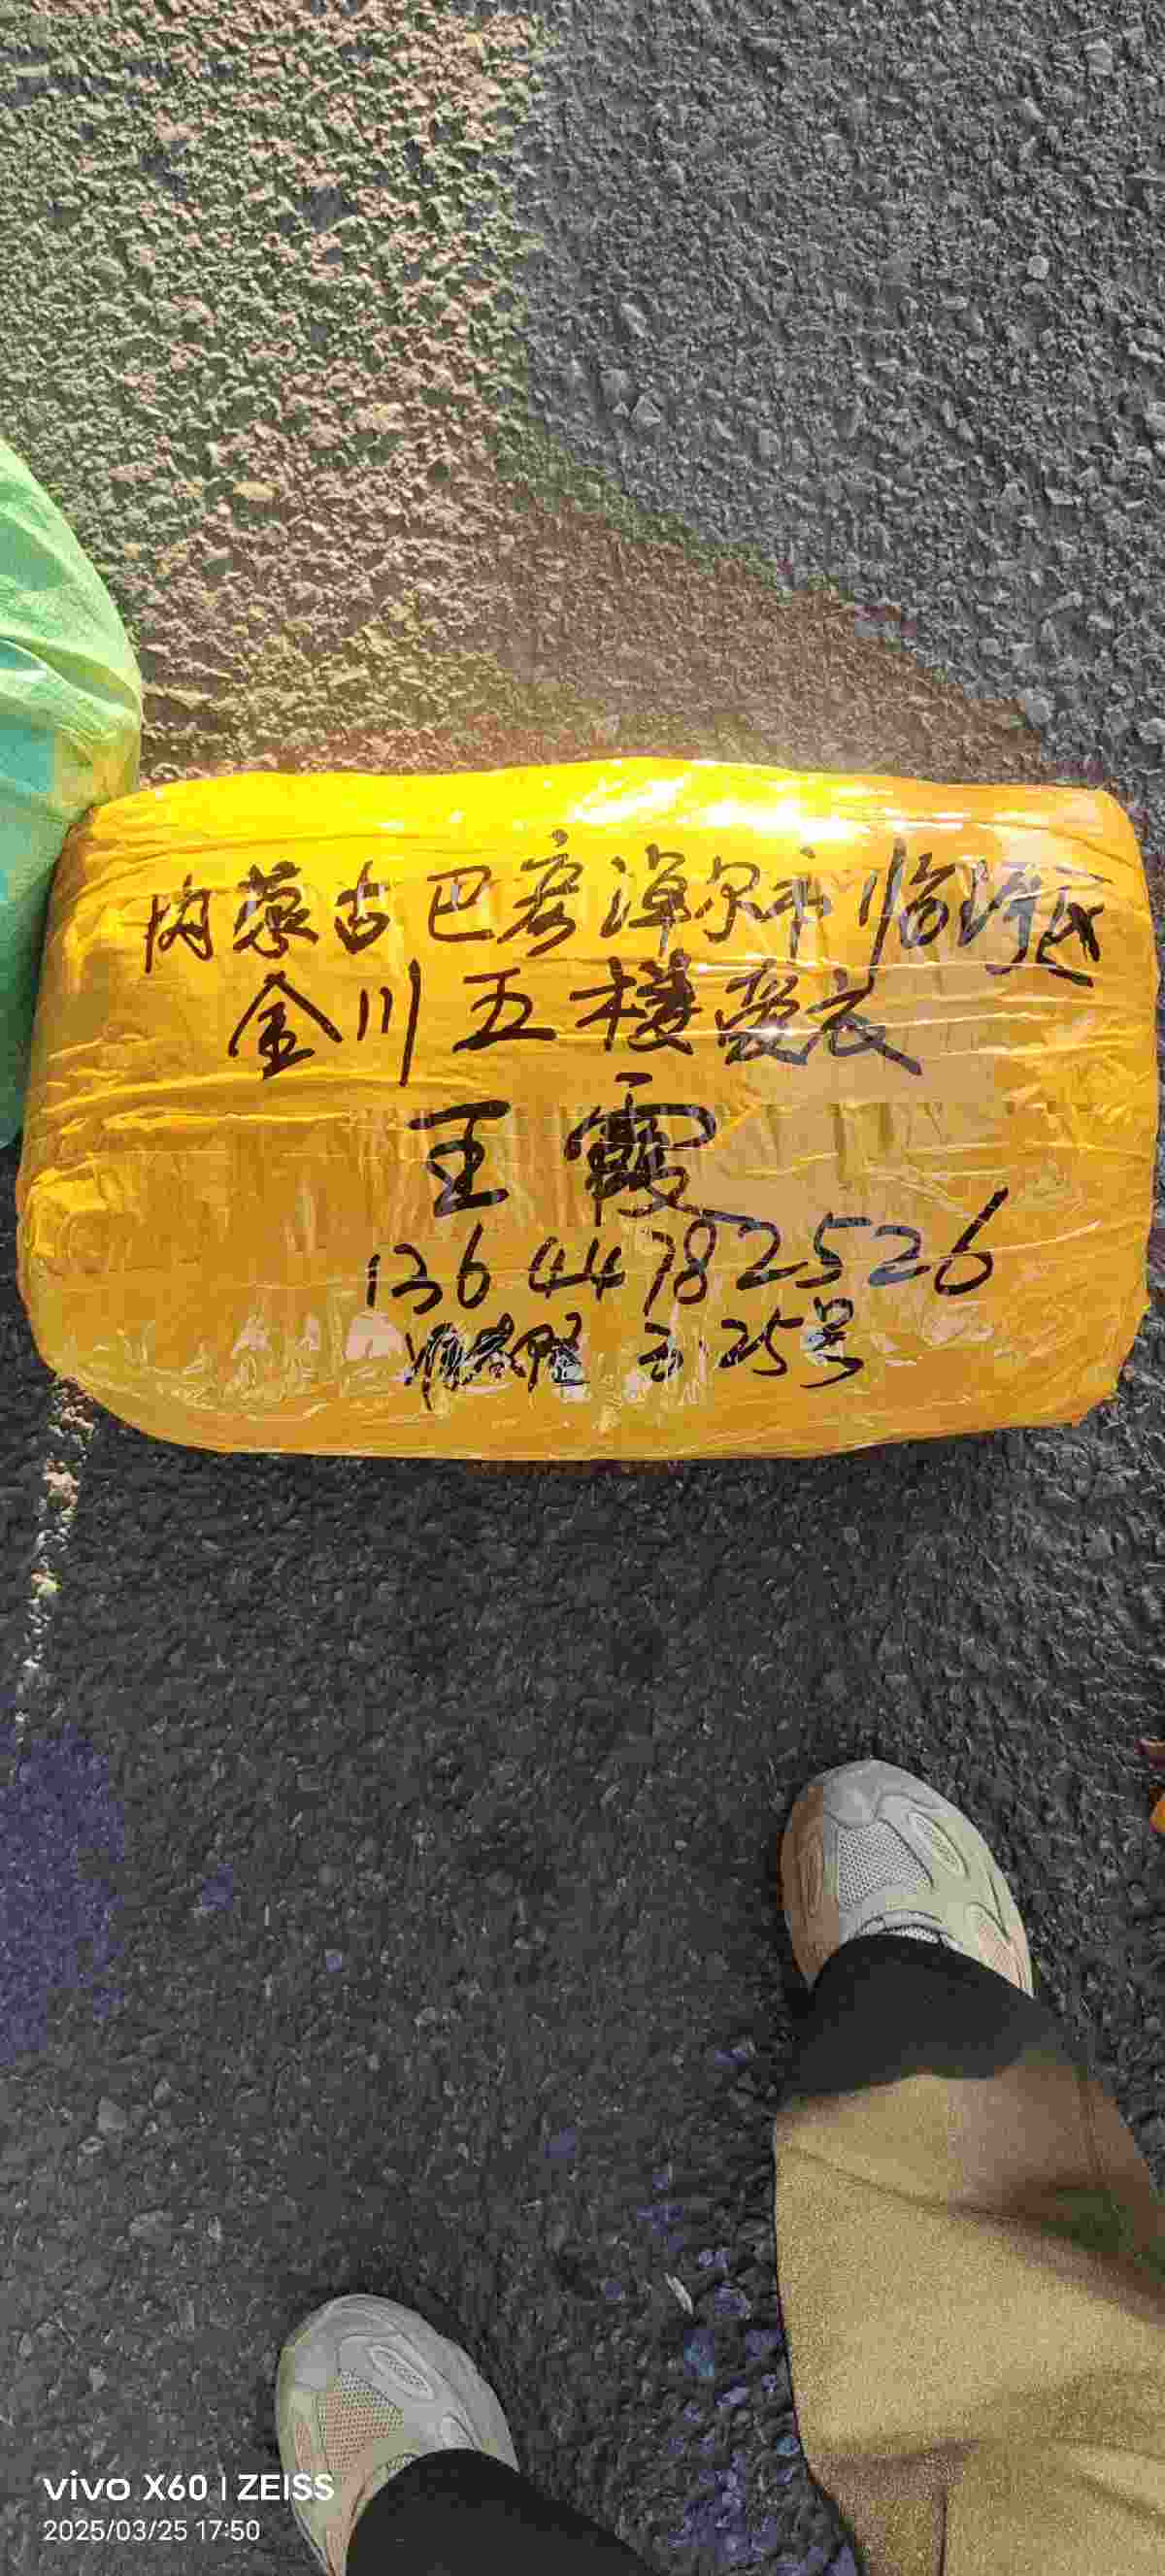 内蒙古巴彦淖尔市临河区
金川五楼爱衣
王霞
13644782526
25号
vivo X60 | ZEISS
2025/03/25 17:50